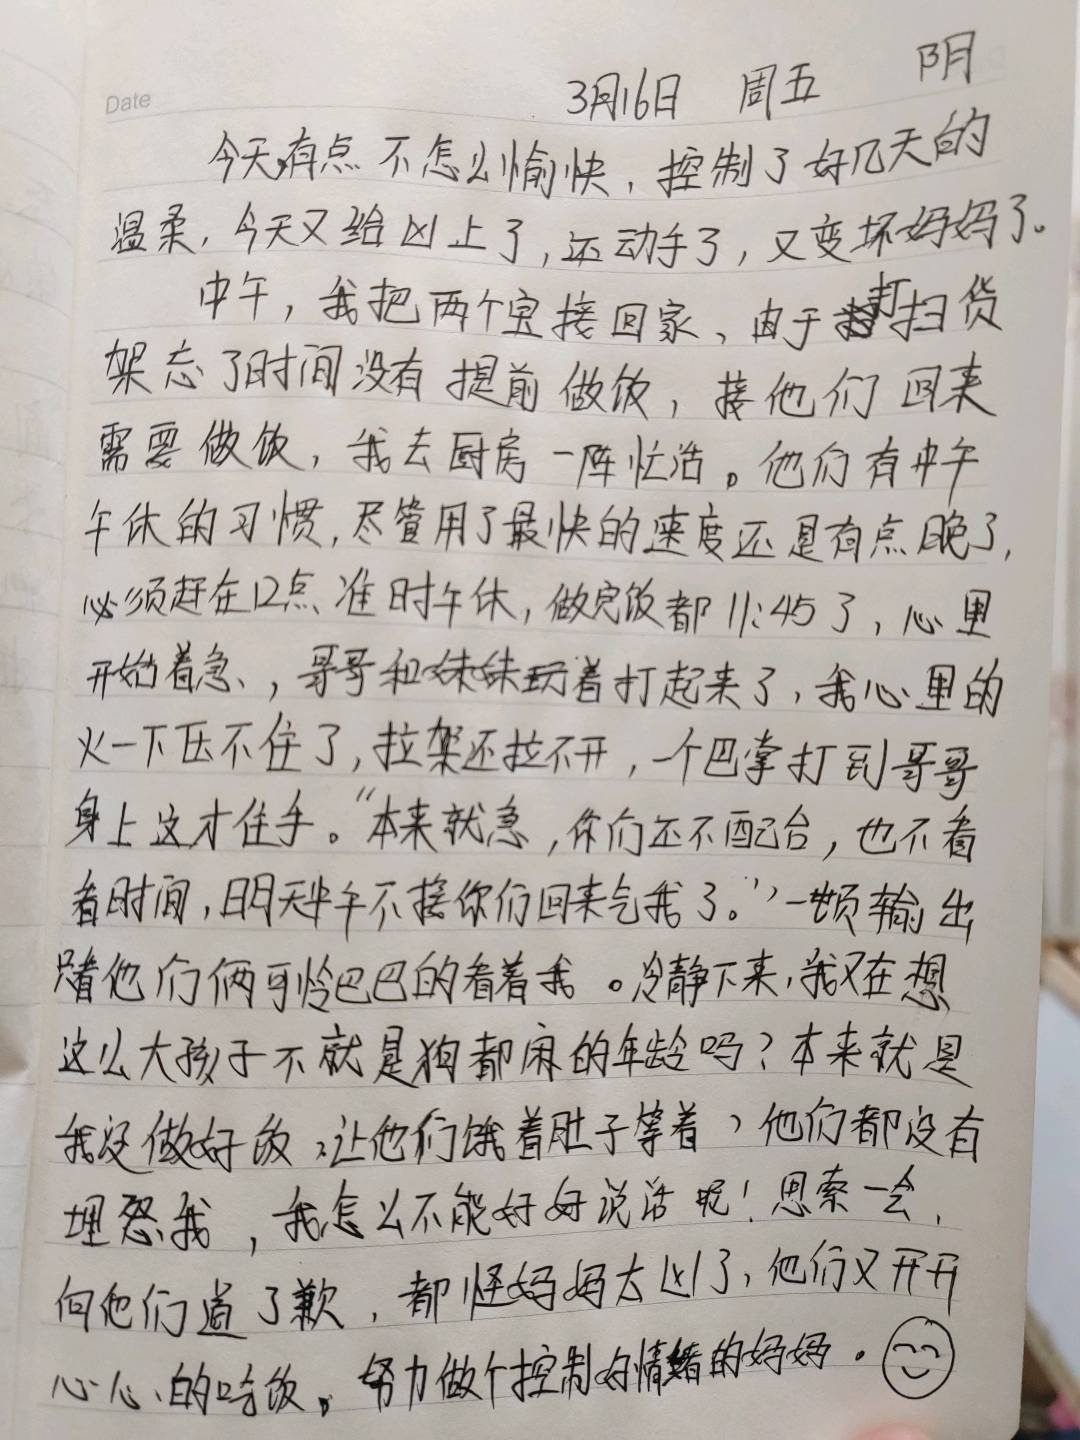 Date
3月16日 周五 阴
今天有点不怎么愉快，控制了好几天的
温柔，今天又给凶上了，还动手了，又变坏妈妈了。
中午，我把两个宝接回家、由于打扫货
架忘了时间没有提前做饭，接他们回来
需要做饭，我去厨房一阵忙活。他们有中午
午休的习惯，尽管用了最快的速度还是有点晚了，
必须赶在12点准时午休，做完饭都11:45了，心里
开始着急、，哥哥和妹妹玩着打起来了，我心里的
火一下压不住了，拉架还拉不开，一个巴掌打到哥哥
身上这才住手。“本来就急，你们还不配合，也不看
看时间，明天中午不接你们回来气我了。”一顿输出
随他们俩可怜巴巴的看着我。冷静下来，我又在想
这么大孩子不就是狗都闲的年龄吗？本来就是
我没做好饭，让他们饿着肚子等着，他们都没有
埋怨我，我怎么不能好好说话呢！思索一会，
向他们道了歉，都怪妈妈太凶了，他们又开开
心心的吃饭。努力做个控制好情绪的妈妈。